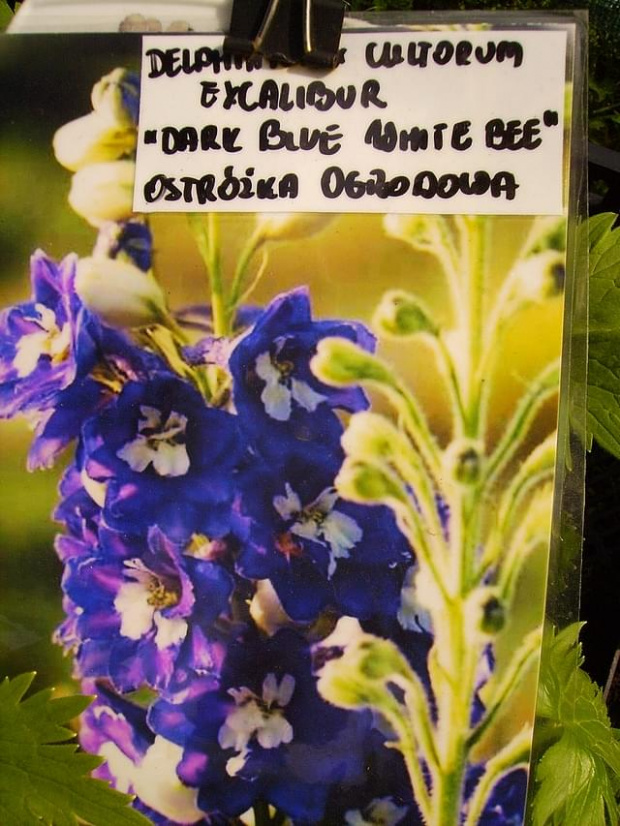 CULTORUM
EXCALIBUR
"DARK BLUE WHITE BEE"
OSTRÓŻKA OGRODOWA